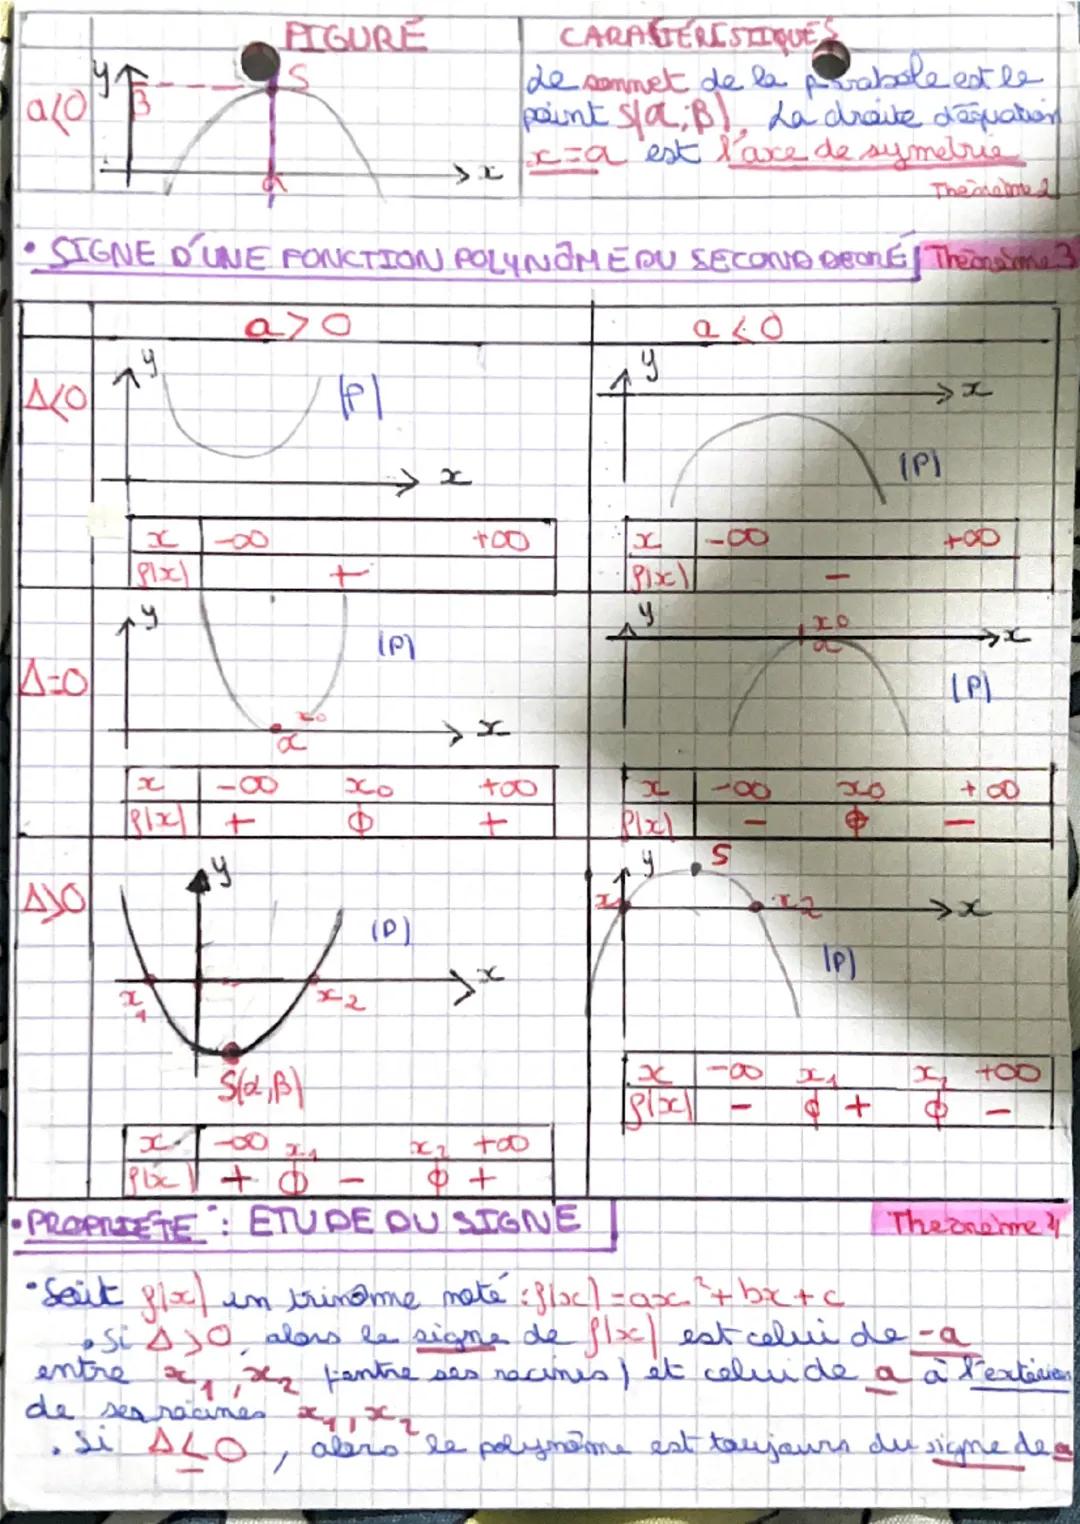 FIGURE CARACTÉRISTIQUES
a<0
y
β
S
α
x
Le sommet de la parabole est le
point S(α;β). La droite d'équation
x=α est l'axe de symetrie
Théorème 2
• SIGNE D'UNE FONCTION POLYNÔME DU SECOND DEGRÉ Théorème 3
a>0 a<0
Δ<0
y (P) x
y x (P)
x -∞ +∞
f(x) +
x -∞ +∞
f(x) -
Δ=0
y (P) x0 α x
y x0 α x (P)
x -∞ x0 +∞
f(x) + 0 +
x -∞ x0 +∞
f(x) - 0 -
Δ>0
y (P) x x1 x2
S(α,β)
y S x1 x2 x (P)
x -∞ x1 x2 +∞
f(x) - 0 + 0 -
x -∞ x1 x2 +∞
f(x) + 0 - 0 +
• PROPRIETE : ETUDE DU SIGNE Theoreme 4
• Soit f(x) un trinôme noté : f(x)=ax²+bx+c
• Si Δ>0, alors le signe de f(x) est celui de -a
entre x1, x2 (entre ses racines) et celui de a à l'extérieur
de ses racines x1, x2
• Si Δ≤0, alors le polynôme est toujours du signe de a